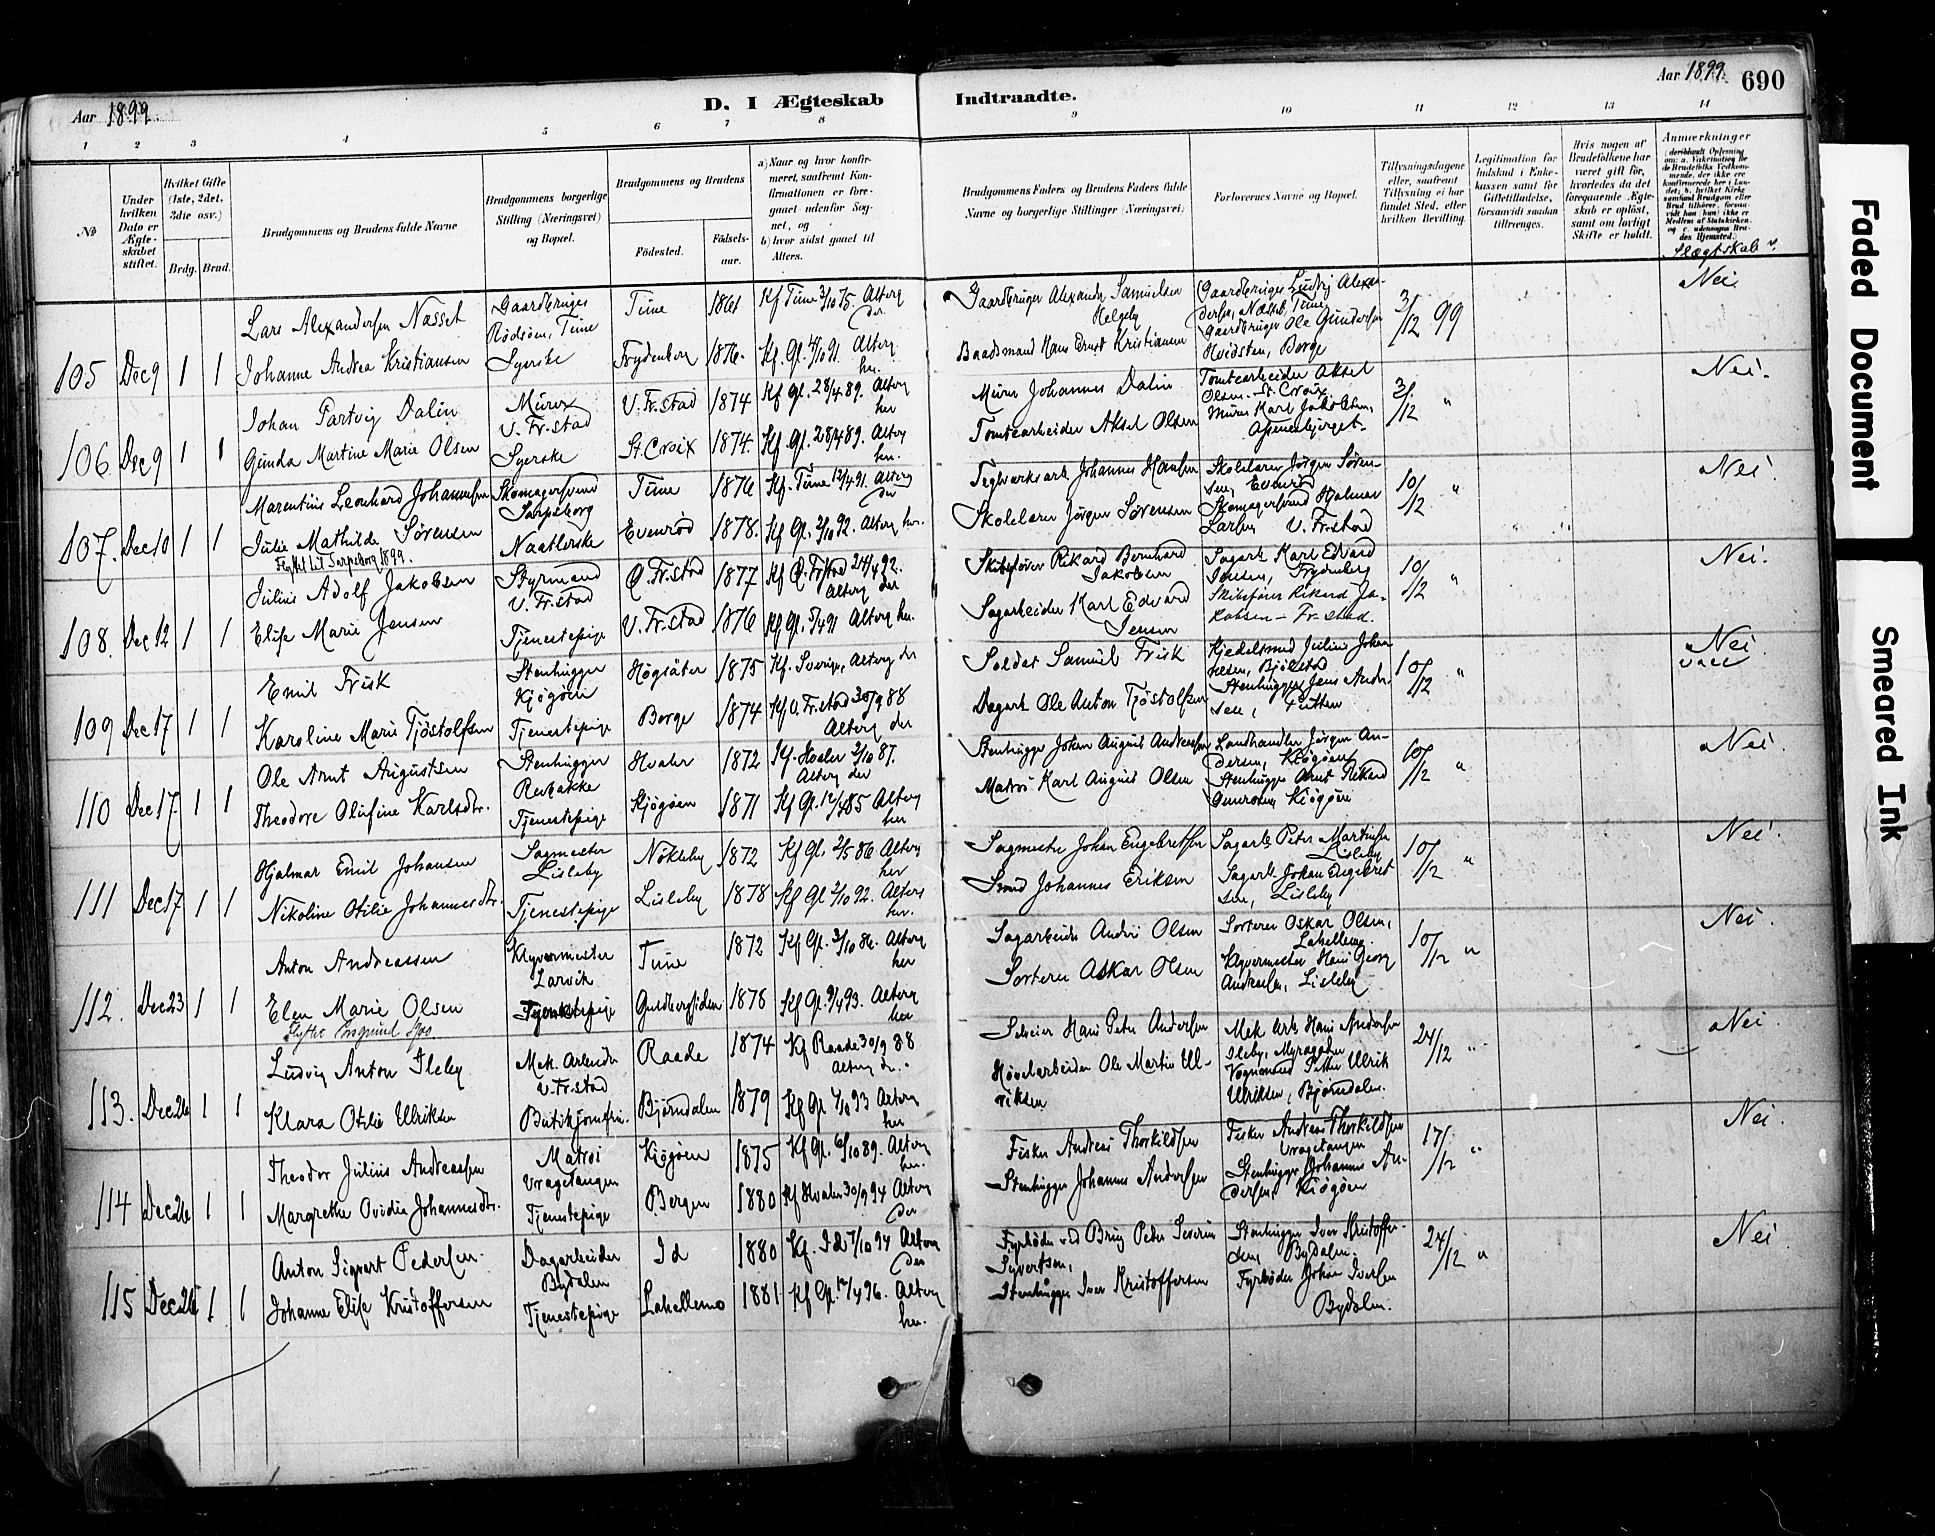 Aar 1899.
D. I Ægteskab
Indtraadte.
Aar 1899. 690
1 2 3 4 5 6 7 8 9 10 11 12 13 14
No
Under hvilken Dato er Ægteskabet stiftet.
Hvilket Gifte (1ste, 2det, 3die osv.)
Brdg. Brud.
Brudgommens og Brudens fulde Navne
Brudgommens borgerlige Stilling (Næringsvei) og Bopæl.
Brudgommens og Brudens
Fødested.
Fødsels-aar.
a) Naar og hvor konfirmeret, saafremt Konfirmationen er foregaaet udenfor Sognet, og
b) hvor sidst gaaet til Alters.
Brudgommens Faders og Brudens Faders fulde Navne og borgerlige Stillinger (Næringsvei)
Forlovernes Navne og Bopæl.
Tillysningsdagene eller, saafremt Tillysning ei har fundet Sted, efter hvilken Bevilling.
Legitimation for Indskud i Enkekassen samt for Giftetilladelse, forsaavidt saadan tiltrænges.
Hvis nogen af Brudefolkene har været gift før, hvorledes da det foregaaende Ægteskab er opløst, samt om lovligt Skifte er holdt.
Anmærkninger
Slægtskab
Lars Alexandersen Nasset
Gaardbruger
Rödsöen, Tune
Tune 1861 Kf Tune 3/10 75 Alterg der
Gaardbruger Alexander Samuelsen Helgeby
Gaardbruger Ludvig Alexandersen, Næset, Tune
3/12 99
Nei
105 Dec 9 1 1
Johanne Andrea Kristiansen
Syerske
Frydenberg 1876. Kf. Gl. 4/10 91. Alterg her.
Baadsmand Hans Ernst Kristiansen
Gaardbruger Ole Gundersen
Hvidsten, Borge
Johan Hartvig Dalin
Murer
V. Fr.stad
V. Fr.stad 1874 Kf Gl. 28/4 89. Alterg her
Murer Johannes Dalin
Tomtearbeider Aksel Olsen. St. Croix
3/12 "
Nei.
106. Dec 9 1 1
Gunda Martine Marie Olsen
Syerske
St. Croix 1874. Kf. Gl. 28/4 89. Alterg her.
Tomtearbeider Aksel Olsen
Murer Karl Jakobsen,
Marentius Leonhard Johannesen
Skomagersvend
Sarpsborg
Tune 1876 Kf. Tune 12/4 91. Alterg der
Teglverksarb. Johannes Hansen
Skolelærer Jörgen Sörensen, Evenröd
10/12 "
Nei.
107. Dec 10 1 1
Julie Mathilde Sørensen
Flyttet til Sarpsborg 1899.
Naatlerske
Evenröd 1878. Kf Gl. 2/10 92. Alterg her.
Skolelærer Jörgen Sørensen
Skomagersvend Hjalmar Larsen V. Fr.stad
Julius Adolf Jakobsen
Styrmand
V. Fr.stad
Ø. Fr.stad 1877 Kf Ø. Fr.stad 24/4 92. Alterg der
Skibsfører Rikard Bernhard Jakobsen
Sagarb. Karl Edvard Jensen, Frydenberg
10/12 "
Nei.
108. Dec 12 1 1
Elise Marie Jensen
Tjenestepige
V. Fr.stad 1876 Kf Gl. 5/4 91 Alterg her.
Sagarbeider Karl Edvard Jensen
Skibsfører Rikard Jakobsen - Fr.stad.
Emil Frisk
Stenhugger
Kjögöen
Högsäter 1875 Kf. Sverige, Alterg der
Soldat Samuel Frisk
Kjedelsmed Julius Johannesen, Bjölstad
10/12 "
Nei
vacc
109 Dec 17 1 1
Karoline Marie Tjöstolfsen
Tjenestepige
Borge 1874 Kf V. Fr.stad 30/9 88 Alterg der
Dagarb. Ole Anton Tjöstolfsen
Stenhugger Jens Andersen,
Ole Arnt Augustsen
Stenhugger
Rubakke
Hvaler 1872 Kf. Hvaler 2/10 87. Alterg der
Stenhugger Johan August Andreassen
Landhandler Jörgen Andersen, Kjögöen
10/12 "
Nei.
110 Dec 17. 1 1
Theodore Olufine Karlsdtr.
Tjenestepige
Kjögöen 1871 Kf Gl. 12/4 85 Alterg her
Matros Karl August Olsen
Stenhugger Arnt Rikard Gunerösen Kjögöen
Hjalmar Emil Johansen
Sagmester
Lisleby
Nökleby 1872 Kf Gl. 2/5 86 Alterg her
Sagmester Johan Engebretsen
Sagarb. Peter Martinsen Lisleby
10/12 "
Nei.
111 Dec 17 1 1
Nikoline Otilie Johannesdtr.
Tjenestepige
Lisleby 1878 Kf Gl 2/10 92. Alterg her.
Smed Johannes Eriksen
Sagarb. Johan Engebretsen, Lisleby
Anton Andreassen
Klyvermester
Larvik
Tune 1872 Kf Gl. 3/10 86. Alterg her
Sagarbeider Andri Olsen
Sorterer Oskar Olsen, Lahellemo.
10/12 "
Nei.
112. Dec 23 1 1
Elen Marie Olsen
Tjenestepige
Guldbergsiden 1878 Kf Gl. 9/4 93. Alterg her
Sorterer Oskar Olsen
Klyvermester Hans Georg Andreasen, Lisleby
Ludvig Anton Ileby
Mek. Arbeider
V. Fr.stad
Raade 1874 Kf Raade 30/9 88 Alterg der.
Selveier Hans Peter Andersen
Mek Arb Hans Andersen Ileby, Myragaden
24/12 "
Nei
113. Dec 26 1 1
Klara Otilie Ulriksen
Butikjomfru.
Björndalen 1879 Kf Gl 1/10 93 Alterg her
Høvelarbeider Ole Martin Ulriksen
Vognmand Petter Ulrik Ulriksen, Björndalen.
Theodor Julius Andreassen
Matros
Vragetangen
Kjögöen 1875 Kf Gl. 6/10 89. Alterg her.
Fisker Andreas Thorkildsen
Fisker Andreas Thorkildsen Vragetangen
17/12 "
Nei.
114 Dec 26 1 1
Margrethe Ovidia Johannesdtr.
Tjenestepige
Bergen 1880 Kf Hvaler 30/9 94 Alterg der
Stenhugger Johannes Andersen
Stenhugger Johannes Andersen, Kjögöen
Anton Sigvart Pedersen.
Dagarbeider
Bydalen
Id 1880 Kf. Id 7/10 94 Alterg der
Fyrböder ved Brug Peder Severin Syvertsen,
Stenhugger Iver Kristoffersen, Bydalen.
24/12 "
Nei
115 Dec 26 1 1
Johanne Elise Kristoffersen
Tjenestepige
Lahellemo 1881 Kf Gl. 12/4 96. Alterg her.
Stenhugger Iver Kristoffersen
Fyrböder Johan Iversen Bydalen.
Faded Document
Smeared Ink